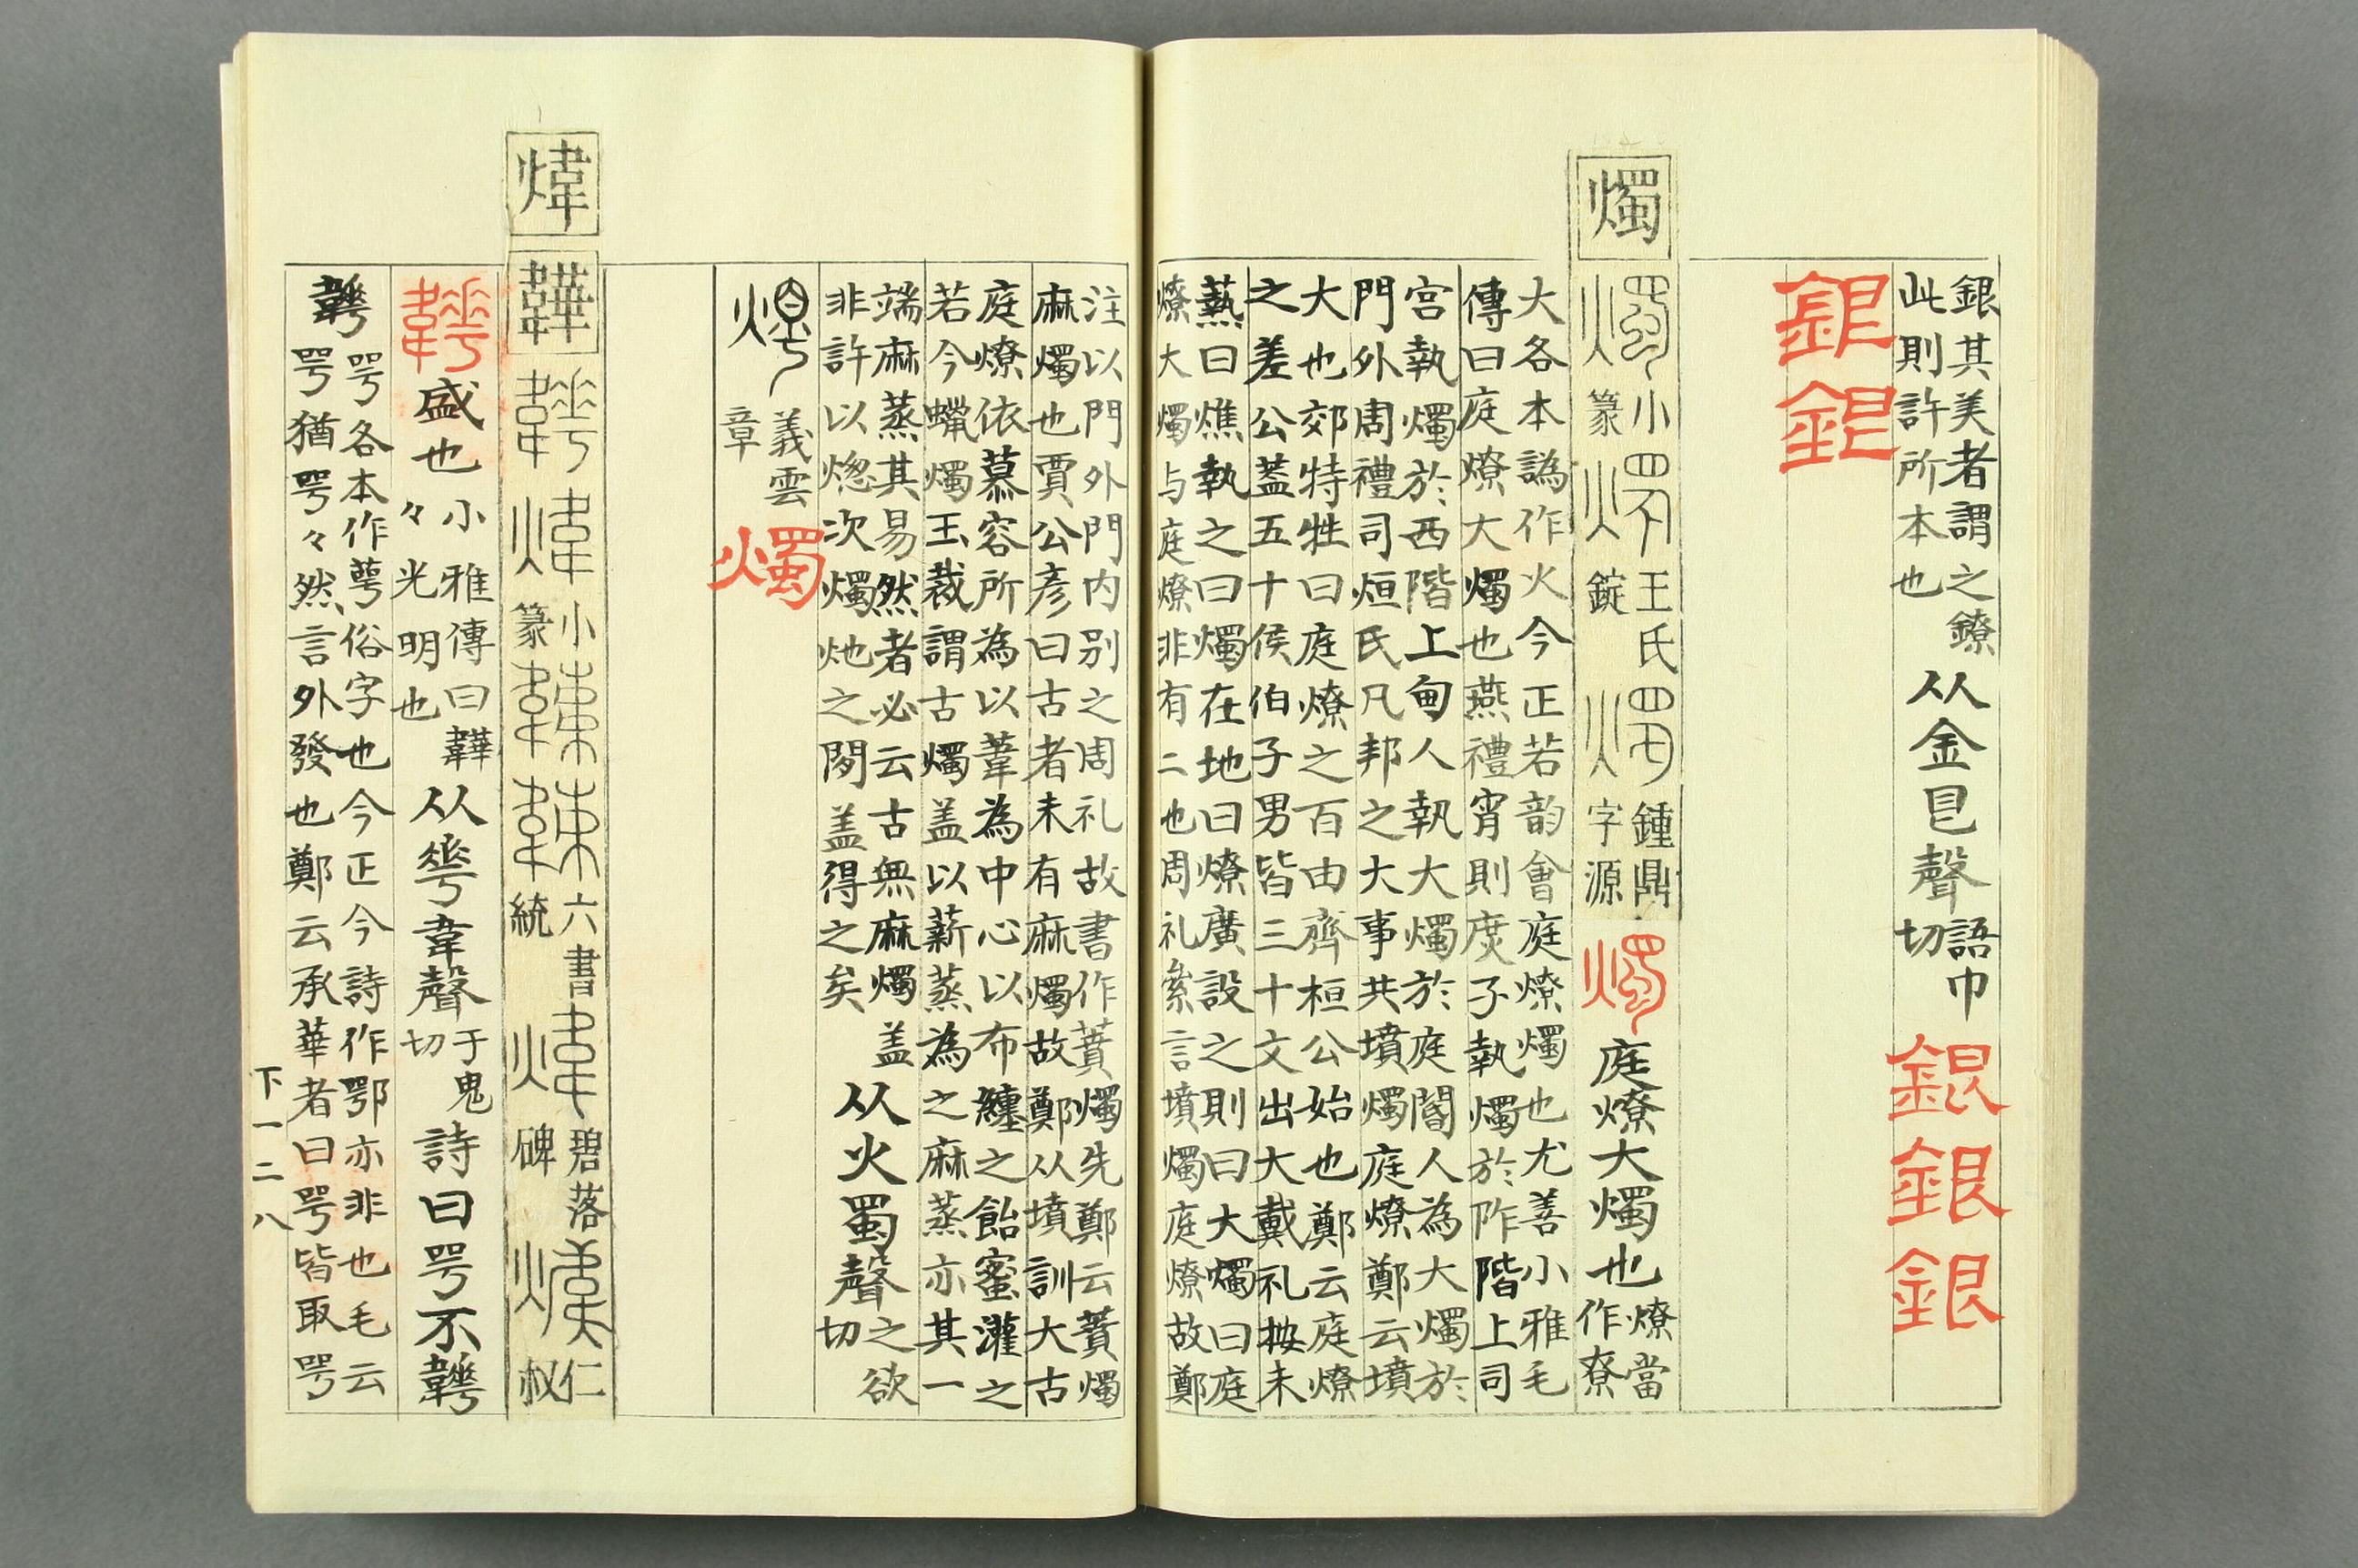 銀其美者謂之鐐
此則許所本也
从金㠯聲
語巾
切
銀銀銀
銀銀
燭
燭
小
篆
燭
王氏
錠
燭
鍾鼎
字源
燭
庭燎大燭也
燎當
作尞
大各本譌作火今正若韵會庭燎燭也尤善小雅毛
傳曰庭燎大燭也燕禮宵則庶子執燭於阼階上司
宮執燭於西階上甸人執大燭於庭閽人為大燭於
門外周禮司烜氏凡邦之大事共墳燭庭燎鄭云墳
大也郊特牲曰庭燎之百由齊桓公始也鄭云庭燎
之差公蓋五十侯伯子男皆三十文出大戴礼按未
爇曰燋執之曰燭在地曰燎廣設之則曰大燭曰庭
燎大燭与庭燎非有二也周礼絫言墳燭庭燎故鄭
注以門外門内别之周礼故書作蕡燭先鄭云蕡燭
麻燭也賈公彥曰古者未有麻燭故鄭从墳訓大古
庭燎依慕容所為以葦為中心以布纏之飴蜜灌之
若今蠟燭玉裁謂古燭盖以薪蒸為之麻蒸亦其一
端麻蒸其易然者必云古無麻燭盖
非許以熜次燭灺之閒盖得之矣
从火蜀聲
之欲
切
燭
義雲
章
燭
煒
韡
韡
煒
小
篆
六書
統
煒
碧落
碑
煒
仁
叔
韡
盛也
小雅傳曰韡
々光明也
从𠌶韋聲
于鬼
切
詩曰咢不韡
韡
咢各本作萼俗字也今正今詩作鄂亦非也毛云
咢猶咢々然言外發也鄭云承華者曰咢皆取咢
下一二八